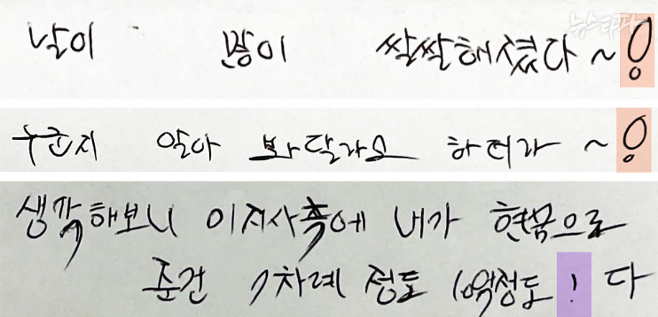 날이 많이 쌀쌀해졌다 ~!
뉴스타파
누군지 알아 봐달라고 하더라 ~!
생각해보니 이지사측에 내가 현금으로
준건 7차례 정도 10억정도 ! 다